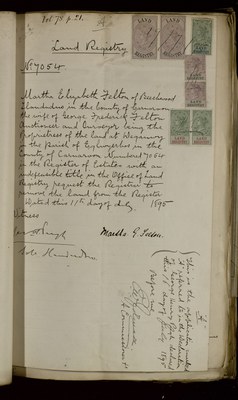 Vol 78 p. 21.
A
Land Registry
No. 7054
Martha Elizabeth Felton of Beechwood
Llandudno in the County of Carnarvon
the wife of George Frederick Felton
Auctioneer and Surveyor being the
Proprietress of the land at Deganwy
in the Parish of Eglwysrhos in the
County of Carnarvon Numbered 7054
in the Register of Estates with an
indefeasible title in the Office of Land
Registry request the Registrar to
remove the land from the Register
Dated this 11th day of July 1895
Witness
Martha E. Felton.
Solr Llandudno
"A"
This is the application marked
A referred to in the Declaration
of George Henry declared
this 18 day of July 1895
Before me,
A Commissioner &c